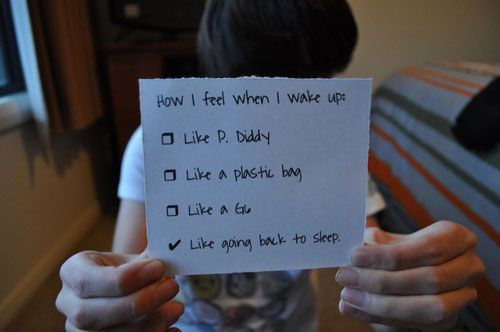 How I feel when I wake up:
Like P. Diddy
Like a plastic bag
Like a G6
Like going back to sleep.